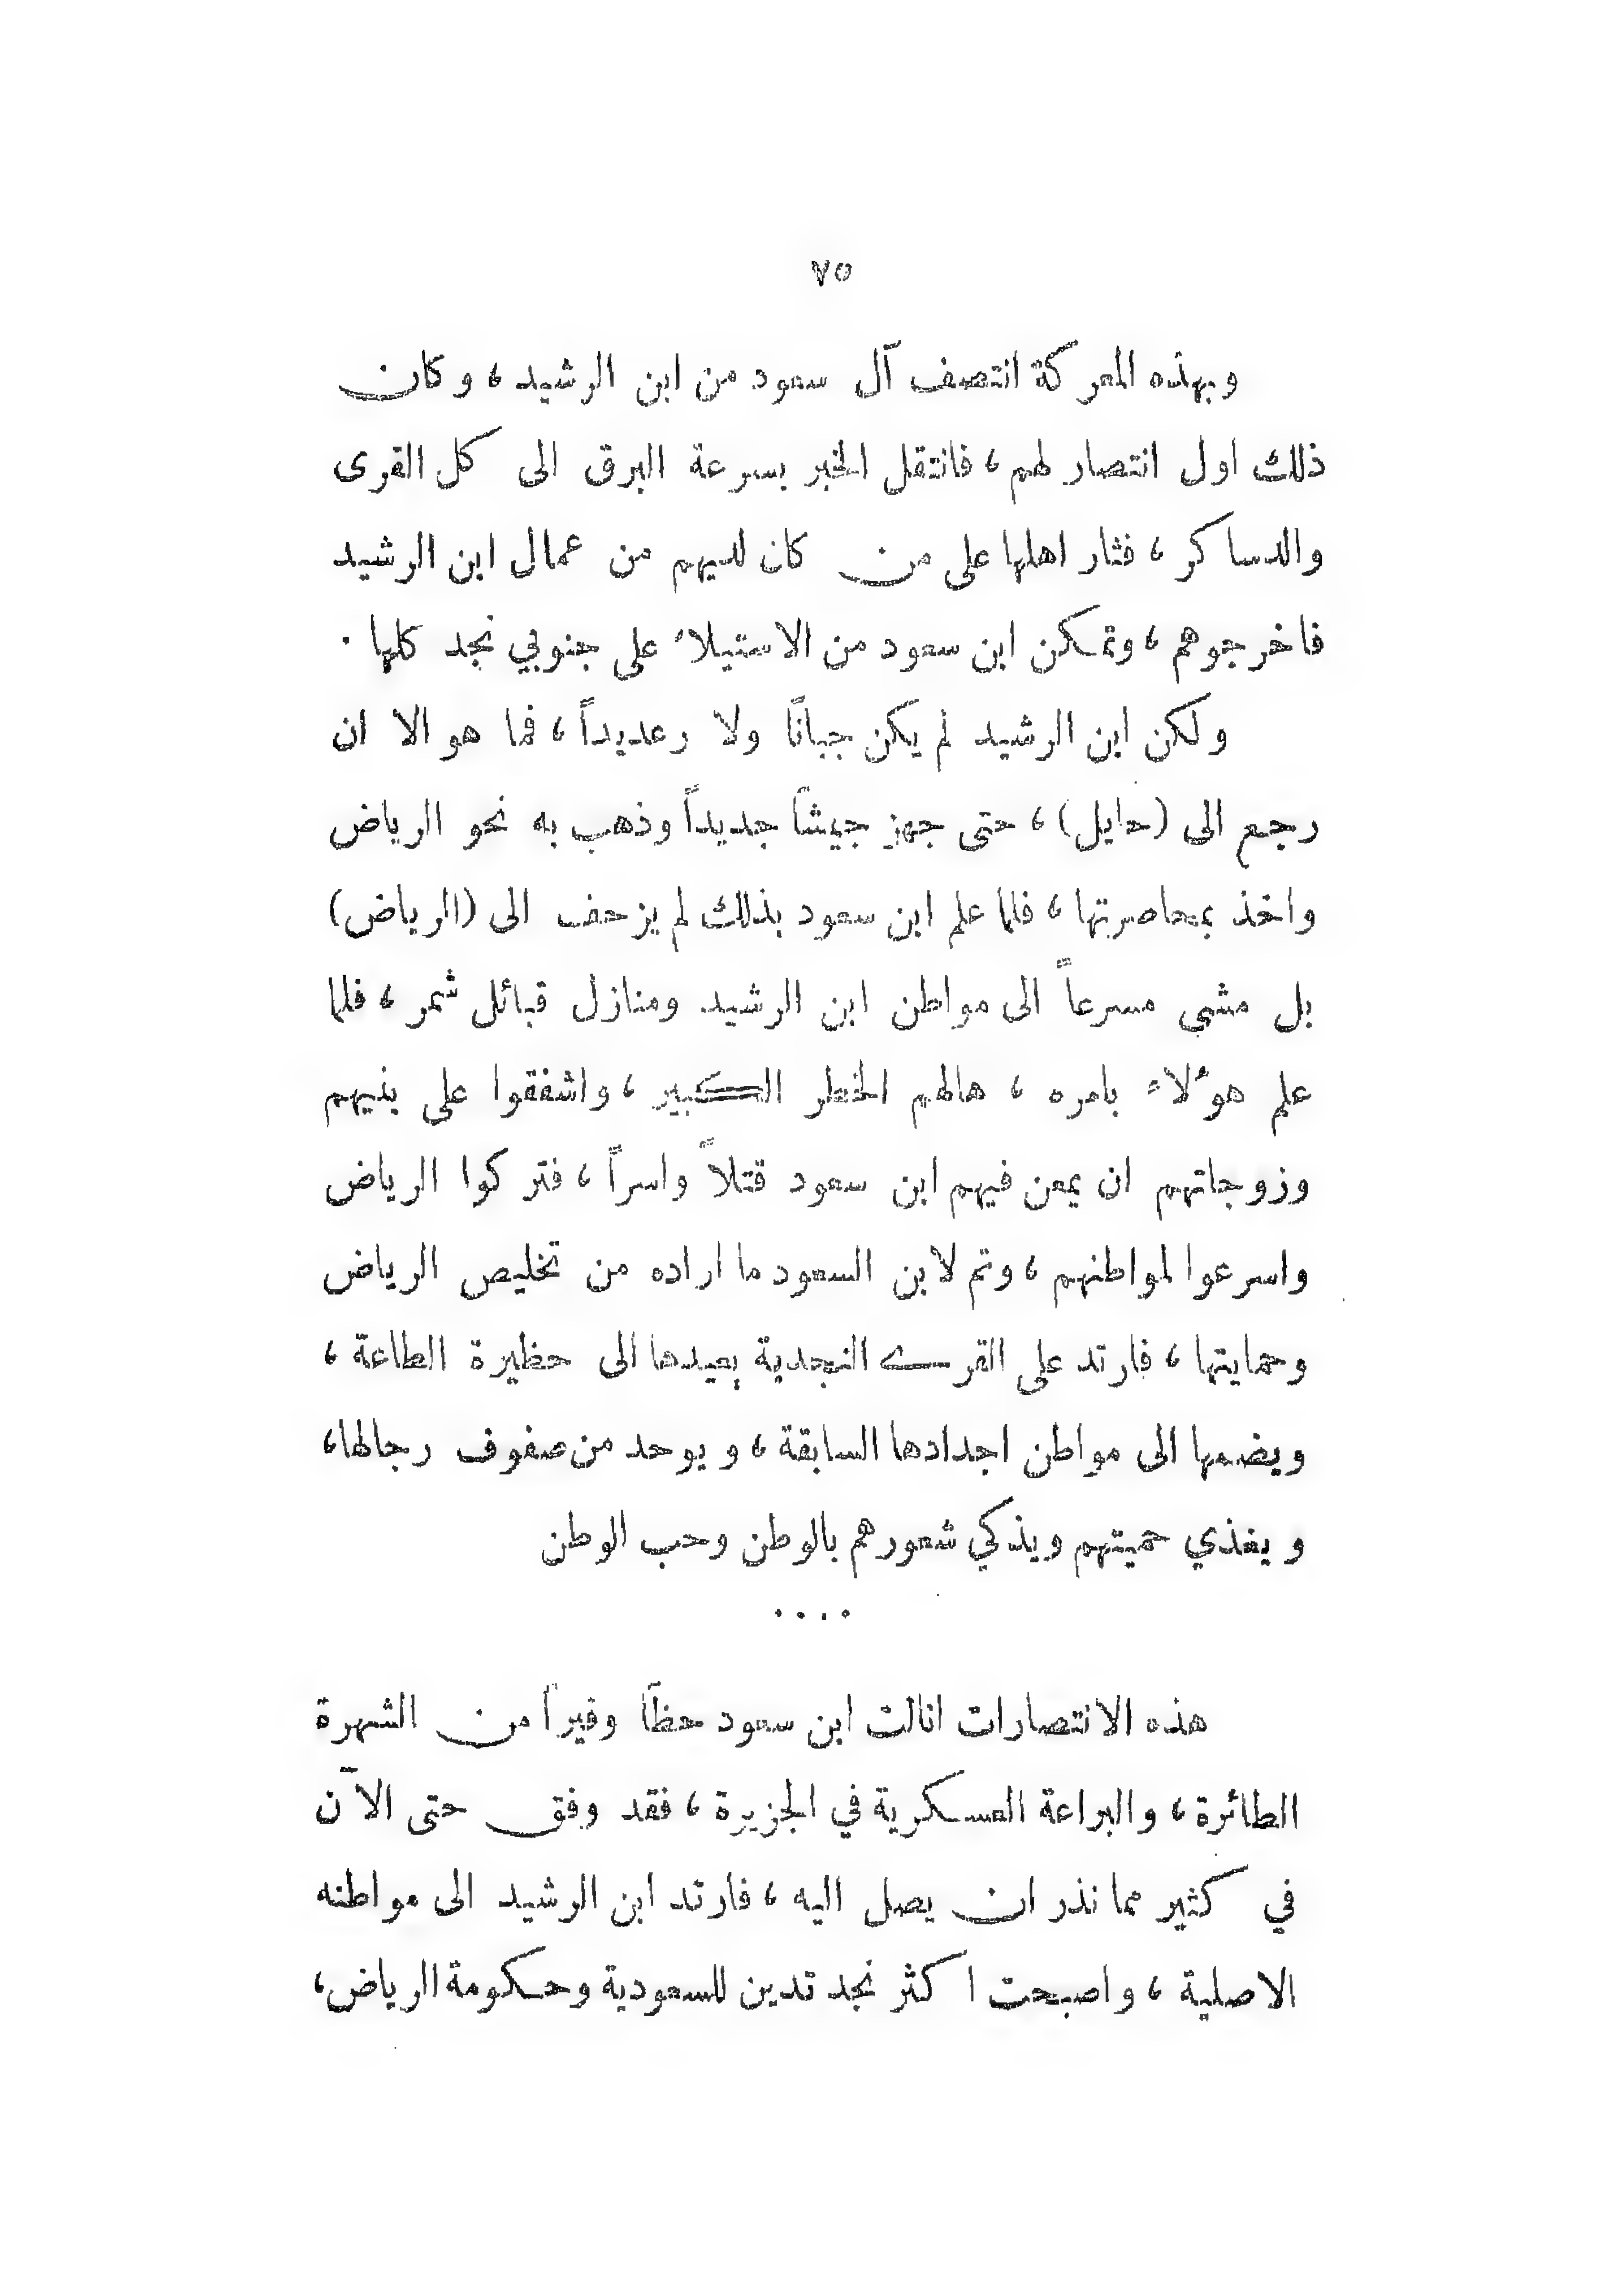 ٧٥
وبهذه المعركة انتصف آل سعود من ابن الرشيد ، وكان
ذلك اول انتصار لهم ، فانتقل الخبر بسرعة البرق الى كل القرى
والدساكر ، فثار اهلها على من كان لديهم من عمال ابن الرشيد
فاخرجوهم ، وتمكن ابن سعود من الاستيلاء على جنوبي نجد كلها .
ولكن ابن الرشيد لم يكن جبانًا ولا رعديداً ، فما هو الا ان
رجع الى (حايل) ، حتى جهز جيشاً جديداً وذهب به نحو الرياض
واخذ بمحاصرتها ، فلما علم ابن سعود بذلك لم يزحف الى (الرياض)
بل مشى مسرعاً الى مواطن ابن الرشيد ومنازل قبائل شمر ، فلما
علم هؤلاء بامره ، هالهم الخطر الكبير ، واشفقوا على بنيهم
وزوجاتهم ان يمعن فيهم ابن سعود قتلاً واسراً ، فتركوا الرياض
واسرعوا لمواطنهم ، وتم لابن السعود ما اراده من تخليص الرياض
وحمايتها ، فارتد على القرى النجدية يعيدها الى حظيرة الطاعة ،
ويضمها الى مواطن اجدادها السابقة ، ويوحد من صفوف رجالها ،
ويغذي حميتهم ويذكي شعورهم بالوطن وحب الوطن
....
هذه الانتصارات انالت ابن سعود حظاً وفيراً من الشهرة
الطائرة ، والبراعة العسكرية في الجزيرة ، فقد وفق حتى الآن
في كثير مما نذر ان يصل اليه ، فارتد ابن الرشيد الى مواطنه
الاصلية ، واصبحت اكثر نجد تدين للسعودية وحكومة الرياض ،